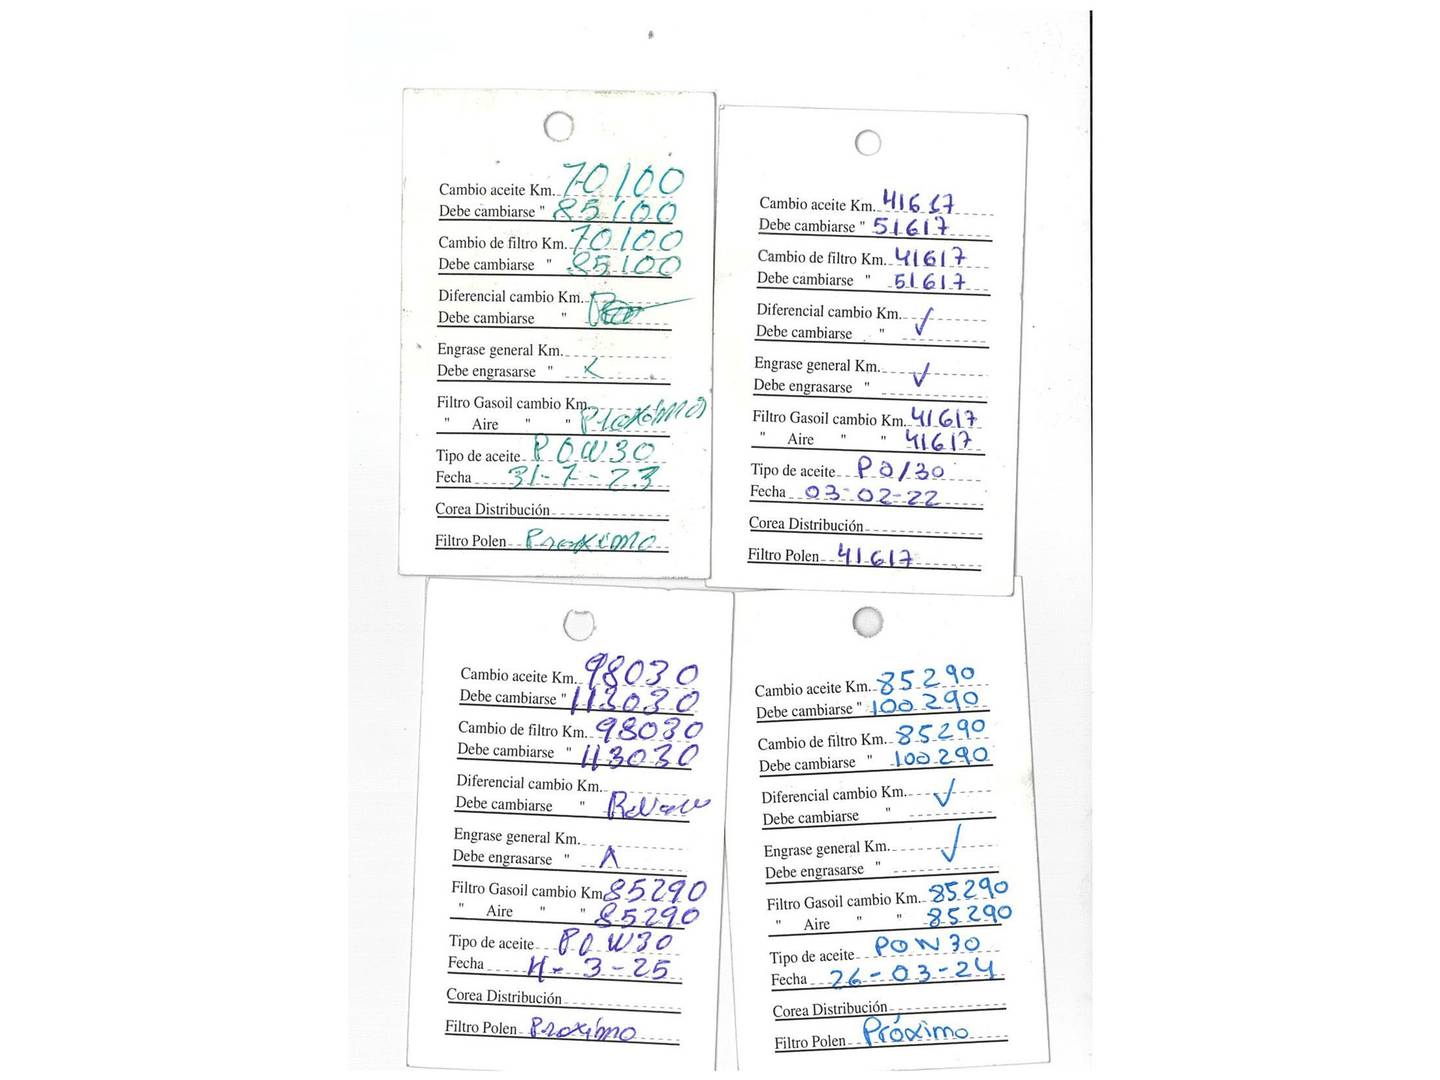 Cambio aceite Km. 70100
Debe cambiarse " 85100
Cambio de filtro Km. 70100
Debe cambiarse " 85100
Diferencial cambio Km.
Debe cambiarse "
Engrase general Km.
Debe engrasarse "
Filtro Gasoil cambio Km.
" Aire " " Proximo
Tipo de aceite POW30
Fecha 31-7-23
Corea Distribución
Filtro Polen Proximo
Cambio aceite Km. 41617
Debe cambiarse " 51617
Cambio de filtro Km. 41617
Debe cambiarse " 51617
Diferencial cambio Km. ✓
Debe cambiarse "
Engrase general Km. ✓
Debe engrasarse "
Filtro Gasoil cambio Km. 41617
" Aire " " 41617
Tipo de aceite PO/30
Fecha 03-02-22
Corea Distribución
Filtro Polen 41617
Cambio aceite Km. 98030
Debe cambiarse " 113030
Cambio de filtro Km. 98030
Debe cambiarse " 113030
Diferencial cambio Km.
Debe cambiarse "
Engrase general Km.
Debe engrasarse "
Filtro Gasoil cambio Km 85290
" Aire " " 85290
Tipo de aceite POW30
Fecha 3-25
Corea Distribución
Filtro Polen Proximo
Cambio aceite Km. 85290
Debe cambiarse " 100.290
Cambio de filtro Km. 85290
Debe cambiarse " 100.290
Diferencial cambio Km. ✓
Debe cambiarse "
Engrase general Km. ✓
Debe engrasarse "
Filtro Gasoil cambio Km. 85290
" Aire " " 85290
Tipo de aceite POW30
Fecha 26-03-24
Corea Distribución
Filtro Polen Próximo